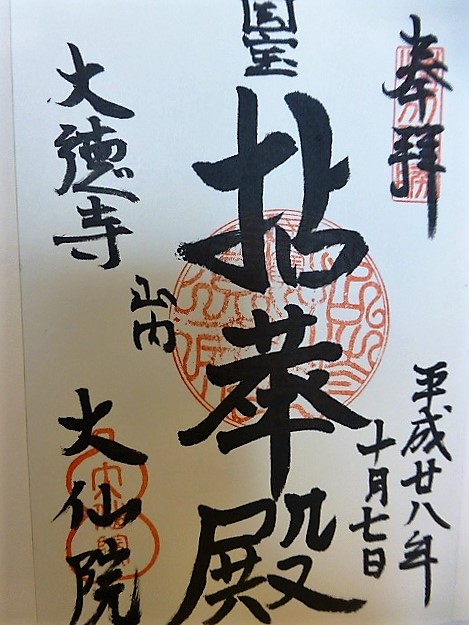 奉拝
平成廿八年
十月七日
国宝
拈華殿
大徳寺
山内
大仙院